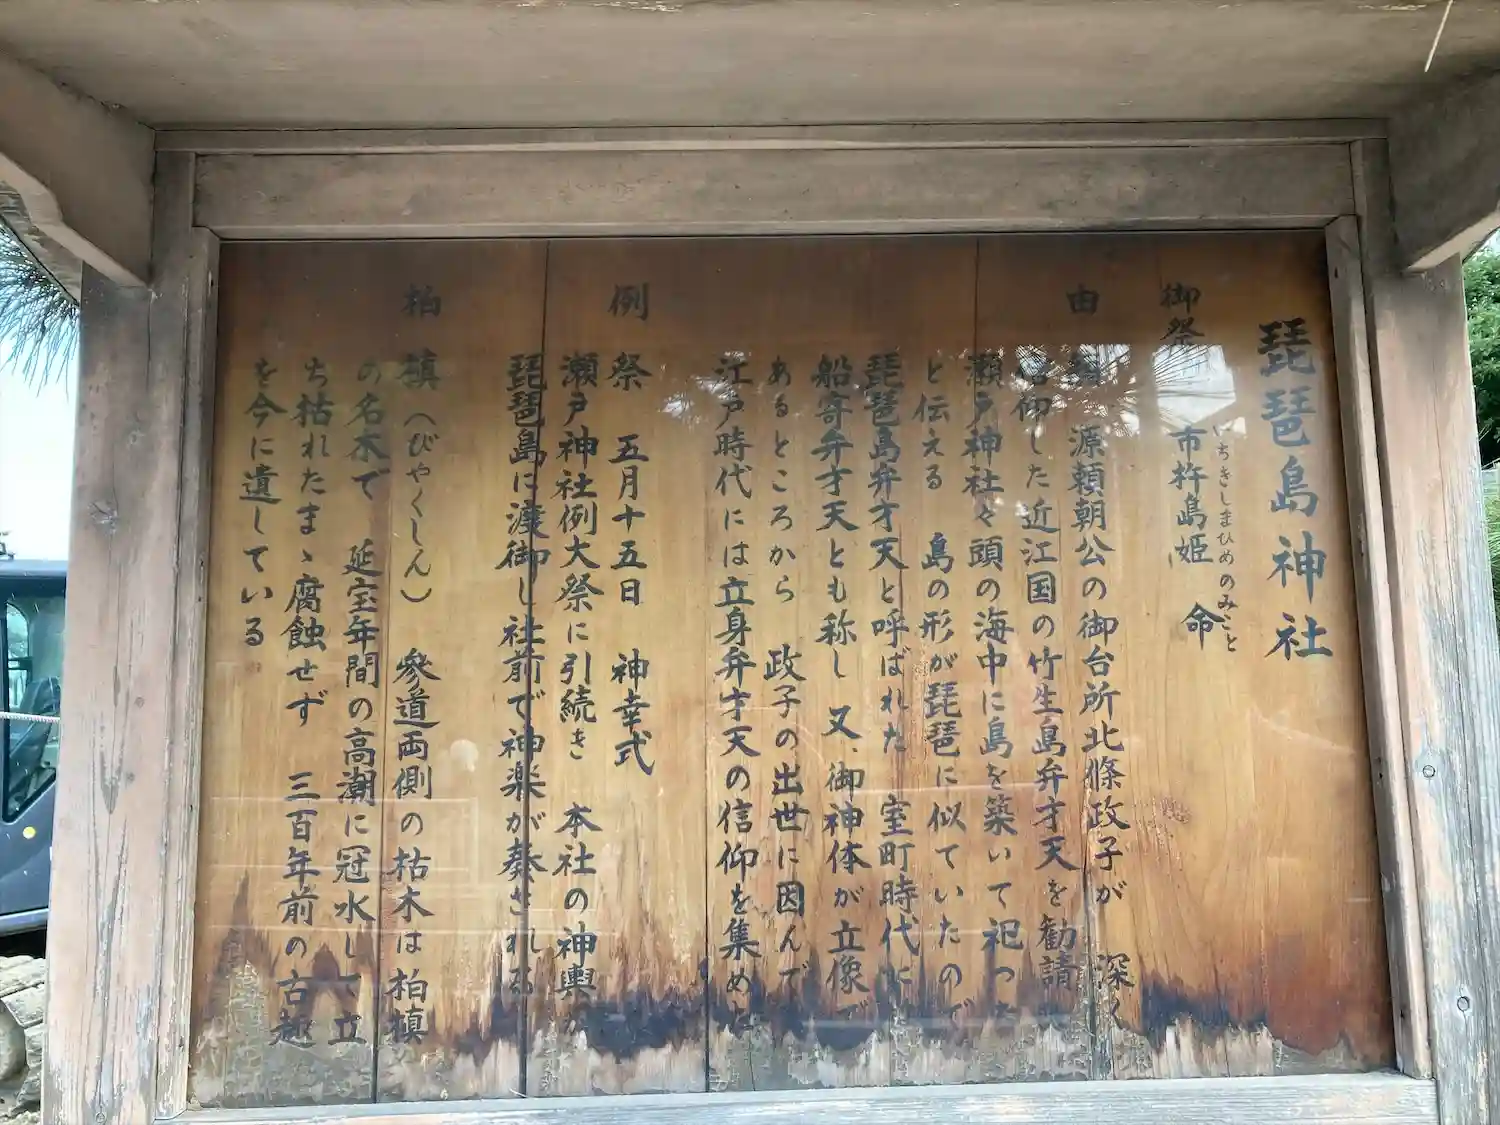 琵琶島神社
御祭
いちきしまひめのみこと
市杵島姫 命
由 緒 源頼朝公の御台所北條政子が 深く
信仰した近江国の竹生島弁才天を勧請
瀬戸神社々頭の海中に島を築いて祀った
と伝える 島の形が琵琶に似ていたので
琵琶島弁才天と呼ばれた 室町時代に
船寄弁才天とも称し 又、御神体が立像で
あるところから 政子の出世に因んで
江戸時代には立身弁才天の信仰を集めた
例 祭 五月十五日 神幸式
瀬戸神社例大祭に引続き 本社の神輿が
琵琶島に渡御し社前で神楽が奏される
柏 槙(びやくしん) 参道両側の枯木は柏槙
の名木で 延宝年間の高潮に冠水して 立
ち枯れたまゝ腐蝕せず 三百年前の古趣
を今に遺している